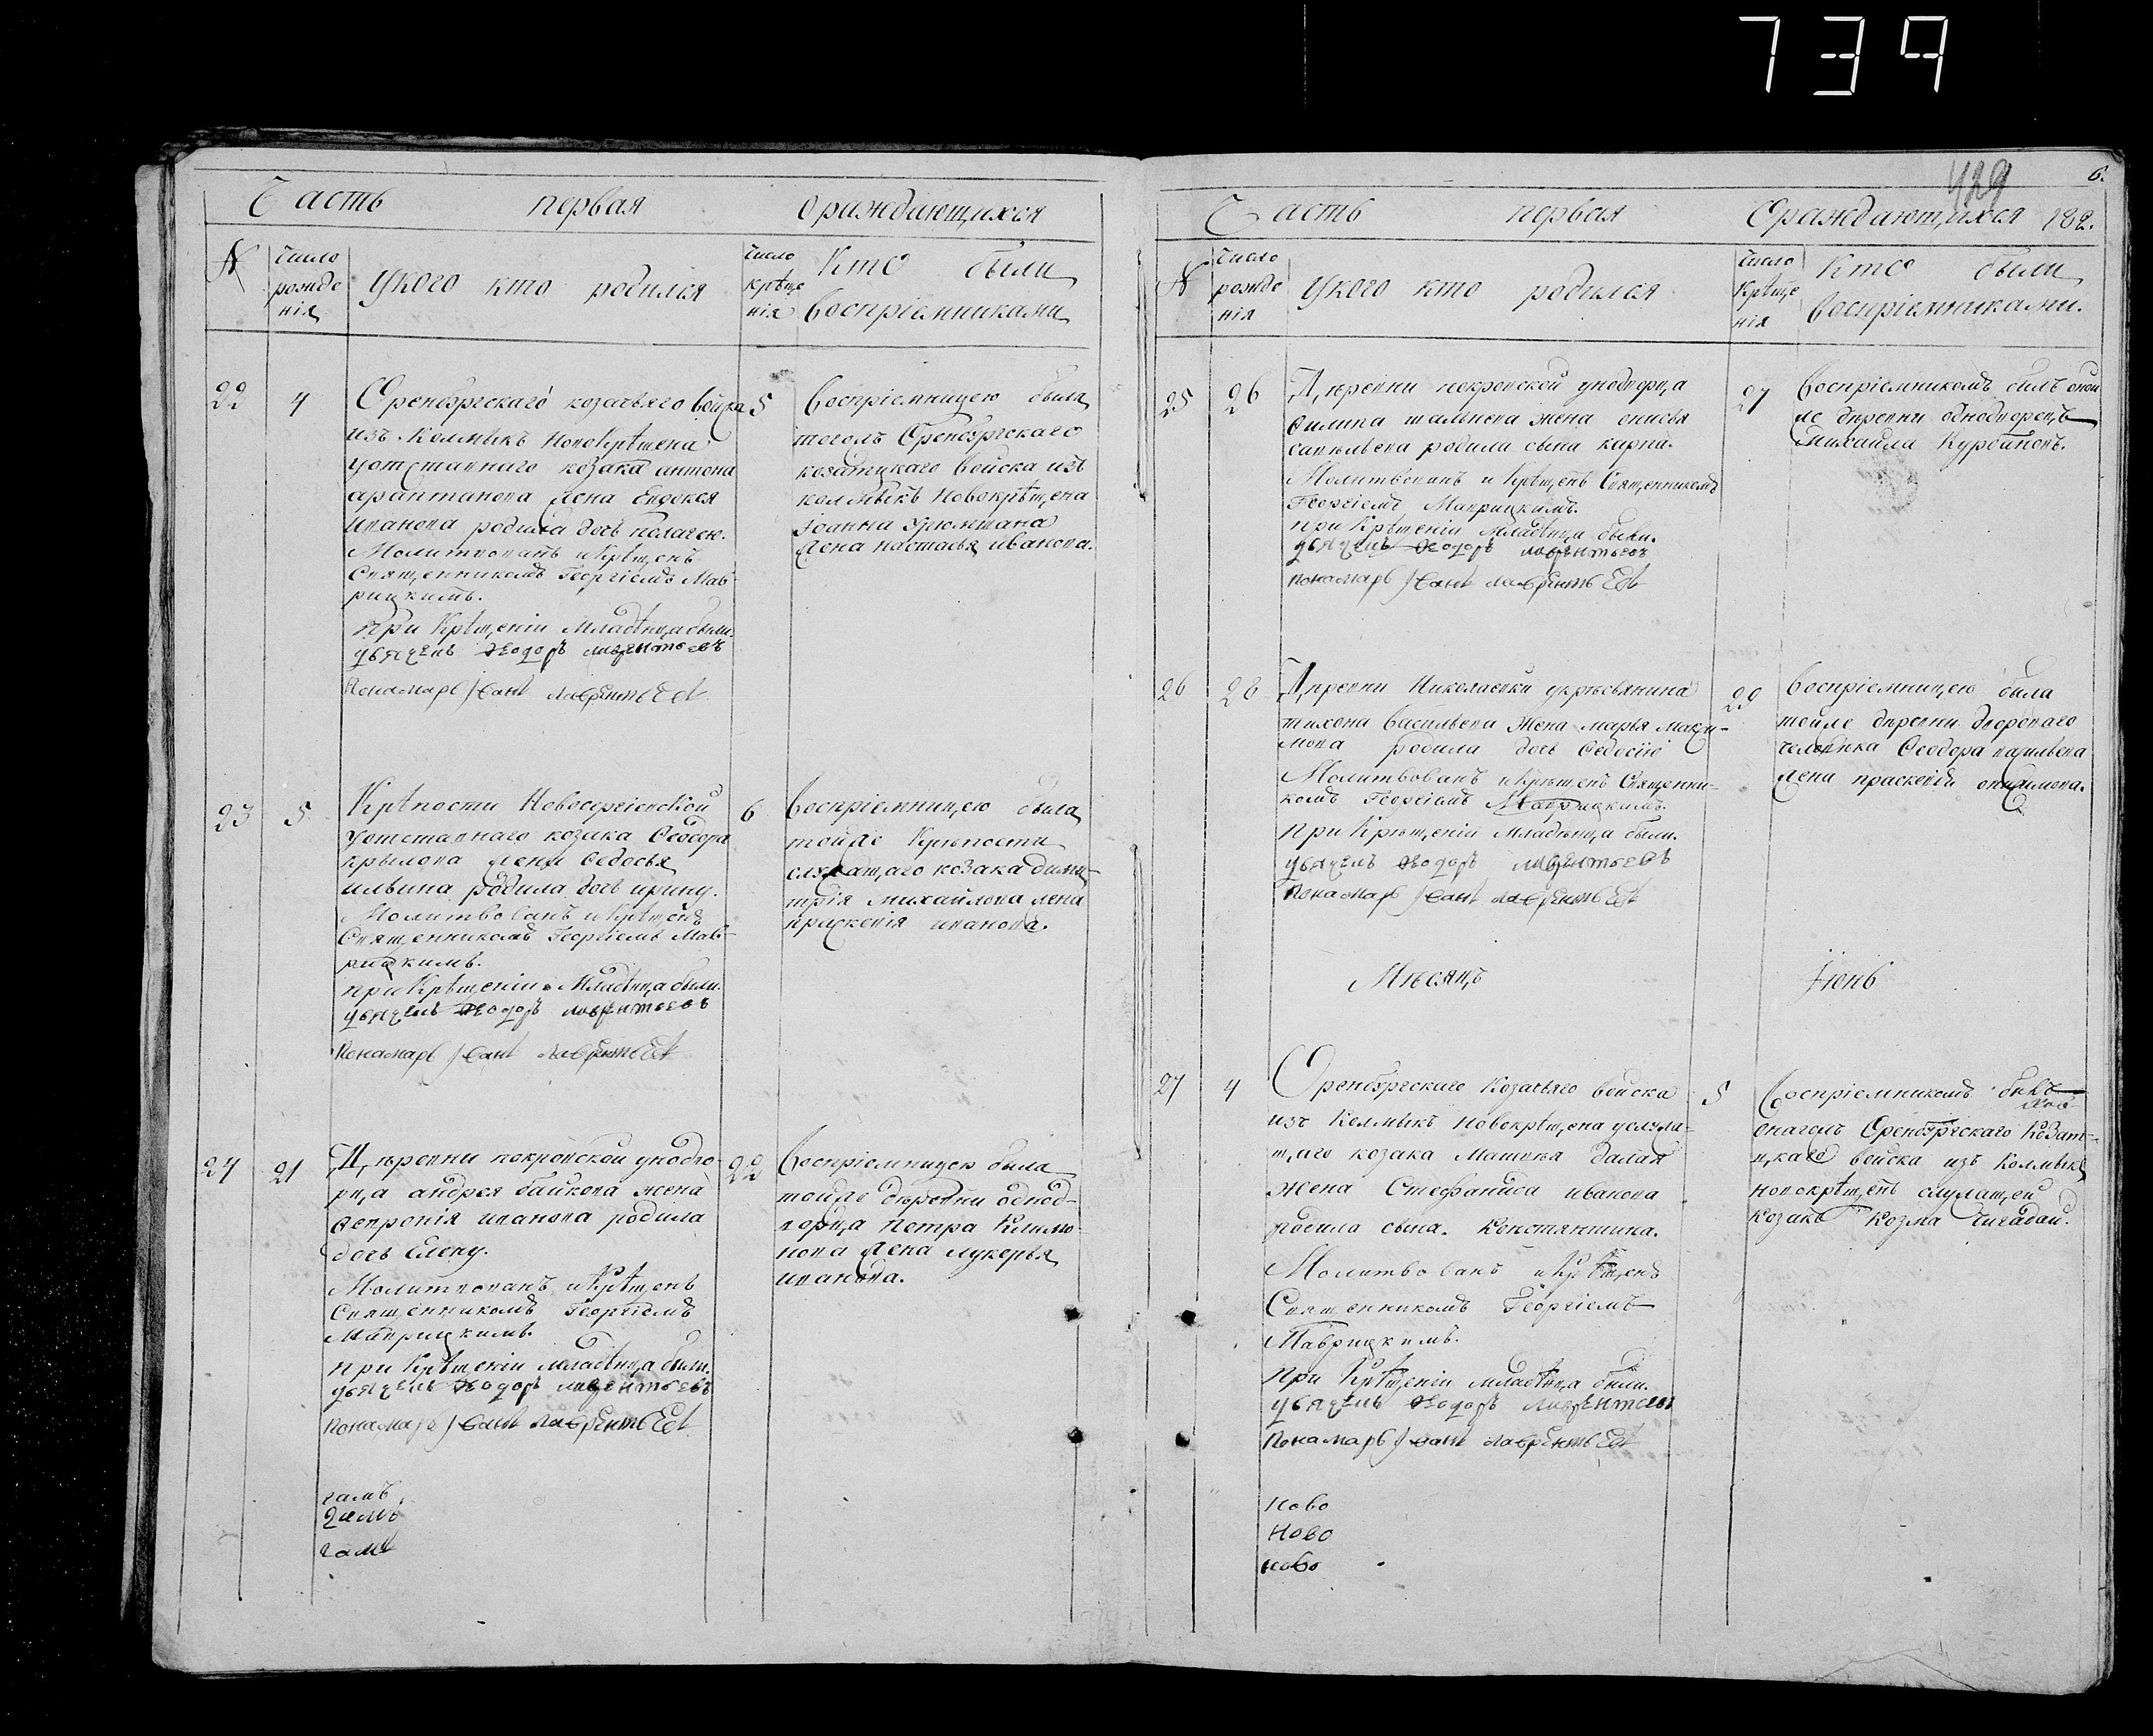 739
Часть первая ораждающихся
№
число рожде нія
Укого кто родился
число крѣще нія
Кто были воспріемниками
22 4
Оренбургскаго козачьяго войска
изъ колмыкъ новокрѣщена
уотставнаго козака антона
арантанова жена Евдокея
иванова родила дочь пелагею.
Молитвованъ икрѣщенъ
Священникомъ Георгіемъ Мав-
рицкимъ.
при крѣщеніи младѣнца были.
дьячекъ Ѳеодоръ лаврентьевъ
Понамарь Іванъ лаврентьЕвъ
5
Воспріемницею была
тогожъ Оренбургскаго
козатцкаго войска изъ
колмыкъ новокрѣщена
іоанна
жена настасья иванова.
23 5
Крѣпости Новосергіевской
уотставнаго козака Ѳеодора
крылова жена Ѳедосья
ильина родила дочь ирину.
Молитвованъ икрѣщенъ
Священникомъ Георгіемъ Мав-
рицкимъ.
при Крѣщеніи Младѣнца были.
дьячекъ Ѳеодоръ лаврентьевъ
Понамарь Іванъ лаврентьЕвъ
6
Воспріемницею была
тойже Крѣпости
служащаго козака дими-
трія михайлова жена
праскевія иванова.
24 21
Дѣревни покровской унодво-
рца андрея байкова жена
Ѳевронія иванова родила
дочь Елену.
Молитвованъ икрѣщенъ
Священникомъ Георгіемъ
Маврицкимъ.
при Крѣщеніи младѣнца были.
дьячекъ Ѳеодоръ лаврентьевъ
Понамарь Іванъ лаврентьЕвъ
22
Воспріемницею была
тойже дѣревни однод-
ворца Петра Климо-
нова жена лукерья
иванова.
гамъ
гамъ
гамъ
429
6.
Часть первая Ораждающихся 182.
№
число рожде нія
Укого кто родился
число Крѣще нія
Кто были воспріемниками.
25 26
Дѣревни покровской унодворца
жена
савельева родила сына карпа.
Молитвованъ и Крѣщенъ Священникомъ
Георгіемъ Маврицкимъ.
при Крѣщеніи младѣнца были.
дьячекъ Ѳеодоръ лаврентьевъ
понамарь Іванъ лаврентьЕвъ
27
Воспріемникомъ былъ оной
же дѣревни однодворецъ
Михайла
26 28
Дѣревни Николаевки укрѣсьянина
тихона васильева жена марья макси-
мова родила дочь Ѳедосію
Молитвованъ икрѣщенъ Священни-
комъ Георгіемъ Маврицкимъ.
при Крѣщеніи младѣнца были.
дьячекъ Ѳеодоръ лаврентьевъ
Понамарь Іванъ лаврентьЕвъ
29
Воспріемницею была
тойже дѣревни двороваго
человѣка Ѳеодора
жена праскевія
Мѣсяцъ Іюнь
27 4
Оренбургскаго Козачьяго войска
изъ Колмыкъ новокрѣщена услужа-
щаго козака Матвея
жена Стефанида иванова
родила сына. Констянтина.
Молитвованъ икрѣщенъ
Священникомъ Георгіемъ
Маврицкимъ.
при Крѣщеніи младѣнца были.
дьячекъ Ѳеодоръ лаврентьевъ
Понамарь Іванъ лаврентьЕвъ
5
Воспріемникомъ былъ
онагожъ Оренбургскаго Козат-
цкаго войска изъ Колмыкъ
новокрѣщенъ служащей
козакъ Козма
ново
ново
ново